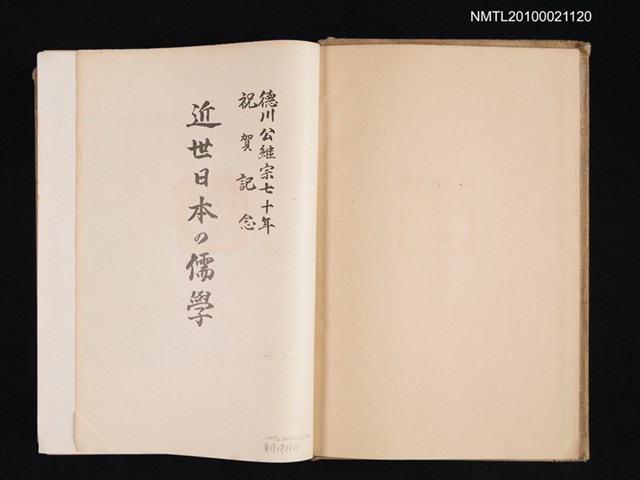 NMTL20100021120
德川公繼宗七十年
祝賀記念
近世日本の儒學